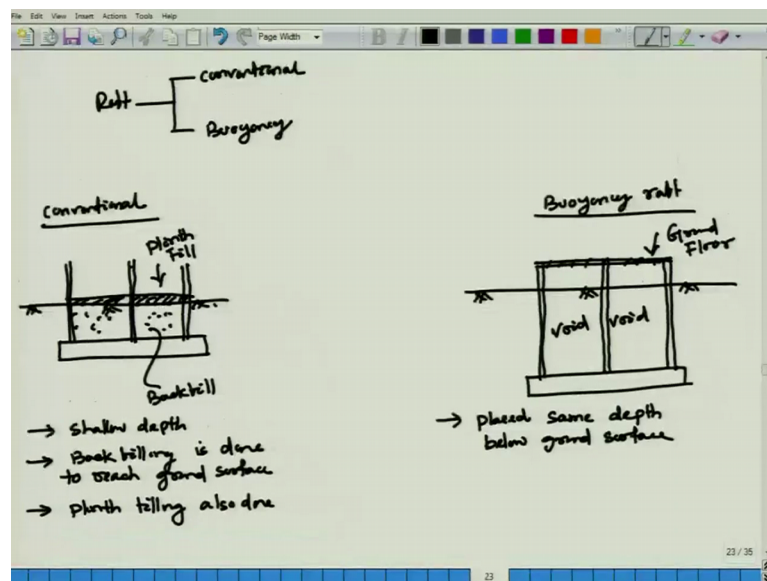 File Edit View Insert Actions Tools Help
Page Width
B I
Raft
Conventional
Buoyancy
Conventional
Plinth
Fill
Backfill
→ Shallow depth
→ Back filling is done
to reach ground surface
→ Plinth filling also done
Buoyancy raft
Ground
Floor
void void
→ placed some depth
below ground surface
23 / 35
23